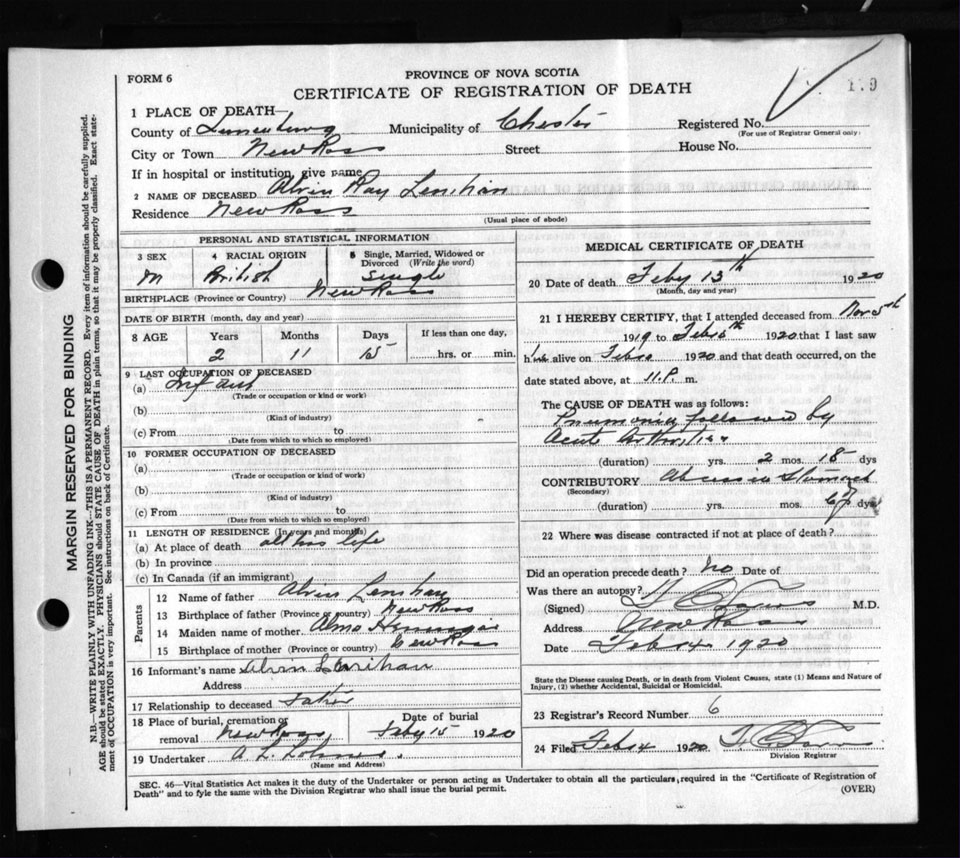 FORM 6
PROVINCE OF NOVA SCOTIA
CERTIFICATE OF REGISTRATION OF DEATH
1 PLACE OF DEATH—
County of Lunenburg Municipality of Chester Registered No.
(For use of Registrar General only)
City or Town New Ross Street House No.
If in hospital or institution, give name
2 NAME OF DECEASED Alvin Ray Lenihan
Residence New Ross
(Usual place of abode)
PERSONAL AND STATISTICAL INFORMATION
3 SEX M
4 RACIAL ORIGIN British
5 Single, Married, Widowed or Divorced (Write the word) Single
BIRTHPLACE (Province or Country) New Ross
DATE OF BIRTH (month, day and year)
8 AGE Years Months Days If less than one day,
2 11 15 hrs. or min.
9 LAST OCCUPATION OF DECEASED
(a) Infant
(Trade or occupation or kind or work)
(b)
(Kind of industry)
(c) From to
(Date from which to which so employed)
10 FORMER OCCUPATION OF DECEASED
(a)
(Trade or occupation or kind or work)
(b)
(Kind of industry)
(c) From to
(Date from which to which so employed)
11 LENGTH OF RESIDENCE (In years and months)
(a) At place of death all his life
(b) In province
(c) In Canada (if an immigrant)
Parents
12 Name of father Alvin Lenihan
13 Birthplace of father (Province or country) New Ross
14 Maiden name of mother Alma
15 Birthplace of mother (Province or country) New Ross
16 Informant's name Alvin Lenihan
Address
17 Relationship to deceased father
18 Place of burial, cremation or removal New Ross
Date of burial Feby 15 1920
19 Undertaker A. L.
(Name and Address)
MEDICAL CERTIFICATE OF DEATH
20 Date of death Feby 13th 1920
(Month, day and year)
21 I HEREBY CERTIFY, that I attended deceased from Nov 5th
1919 to Feb 1920 that I last saw
him alive on Feb 1920 and that death occurred, on the
date stated above, at 11.P. m.
The CAUSE OF DEATH was as follows:
Pneumonia followed by
Acute Arthritis
(duration) yrs. 2 mos. 18 dys
CONTRIBUTORY Abscess in Stomach
(Secondary)
(duration) yrs. mos. dys
22 Where was disease contracted if not at place of death?
Did an operation precede death? No Date of
Was there an autopsy?
(Signed) M.D.
Address New Ross
Date Feb 14 1920
State the Disease causing Death, or in death from Violent Causes, state (1) Means and Nature of
Injury, (2) whether Accidental, Suicidal or Homicidal.
23 Registrar's Record Number 6
24 Filed Feb 14 1920
Division Registrar
SEC. 46—Vital Statistics Act makes it the duty of the Undertaker or person acting as Undertaker to obtain all the particulars, required in the "Certificate of Registration of
Death" and to fyle the same with the Division Registrar who shall issue the burial permit.
(OVER)
MARGIN RESERVED FOR BINDING
N.B.—WRITE PLAINLY WITH UNFADING INK—THIS IS A PERMANENT RECORD. Every item of information should be carefully supplied.
AGE should be stated EXACTLY. PHYSICIANS should STATE CAUSE OF DEATH in plain terms, so that it may be properly classified. Exact statement
of OCCUPATION is very important. See instructions on back of Certificate.